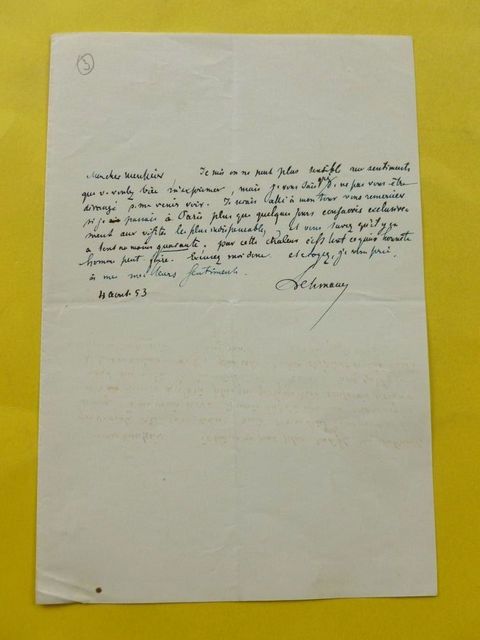 3
Mon cher Monsieur Je suis on ne peut plus sensible aux sentiments
que v. voulez bien m'exprimer, mais je vous sais gré de ne pas vous être
dérangé p. me venir voir. Je serais allé à mon tour vous remercier
si je passais à Paris plus que quelques jours consacrés exclusive-
ment aux visites les plus indispensables, et vous savez qu'il y en
a tout au moins quarante. par cette chaleur c'est tout ce qu'un honnête
homme peut faire. Excusez moi donc et croyez, je vous prie,
à mes meilleurs sentiments.
Lehmann
4 Aout 53